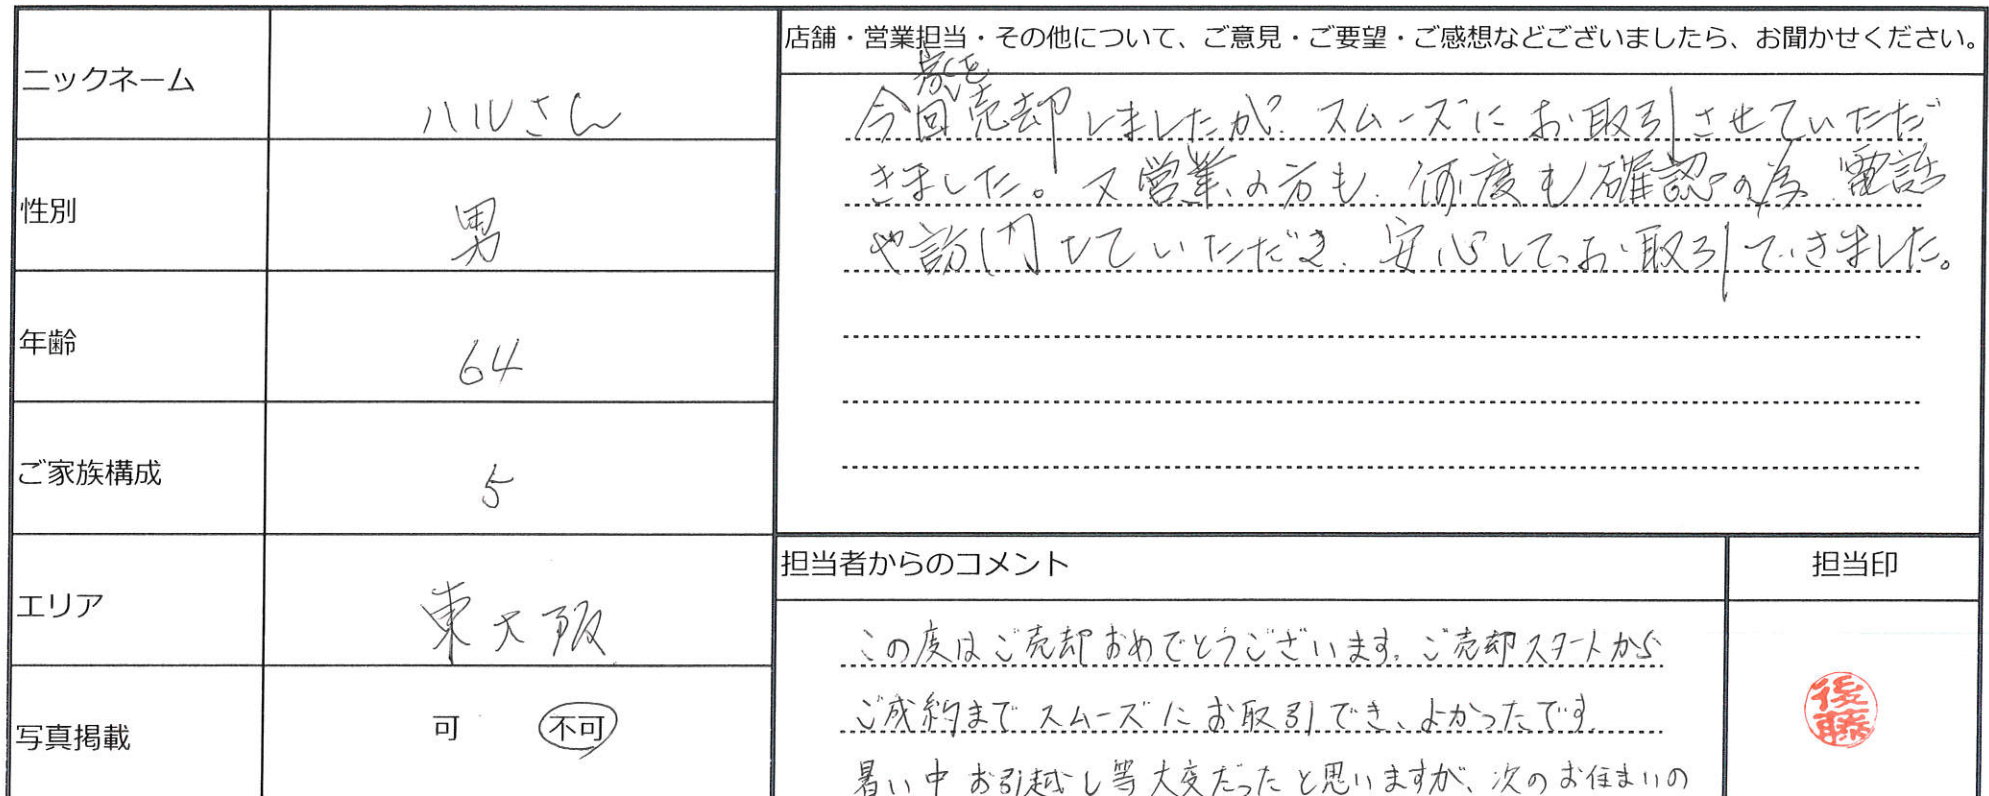 ニックネーム
ハルさん
性別
男
年齢
64
ご家族構成
5
エリア
東大阪
写真掲載
可 不可
店舗・営業担当・その他について、ご意見・ご要望・ご感想などございましたら、お聞かせください。
家を
今回売却しましたが、スムーズにお取引させていただ
きました。又営業の方も、何度も確認の為、電話
や訪問していただき、安心してお取引できました。
担当者からのコメント
この度はご売却おめでとうございます。ご売却スタートから
ご成約までスムーズにお取引でき、よかったです。
暑い中お引越し等大変だったと思いますが、次のお住まいの
担当印
後藤